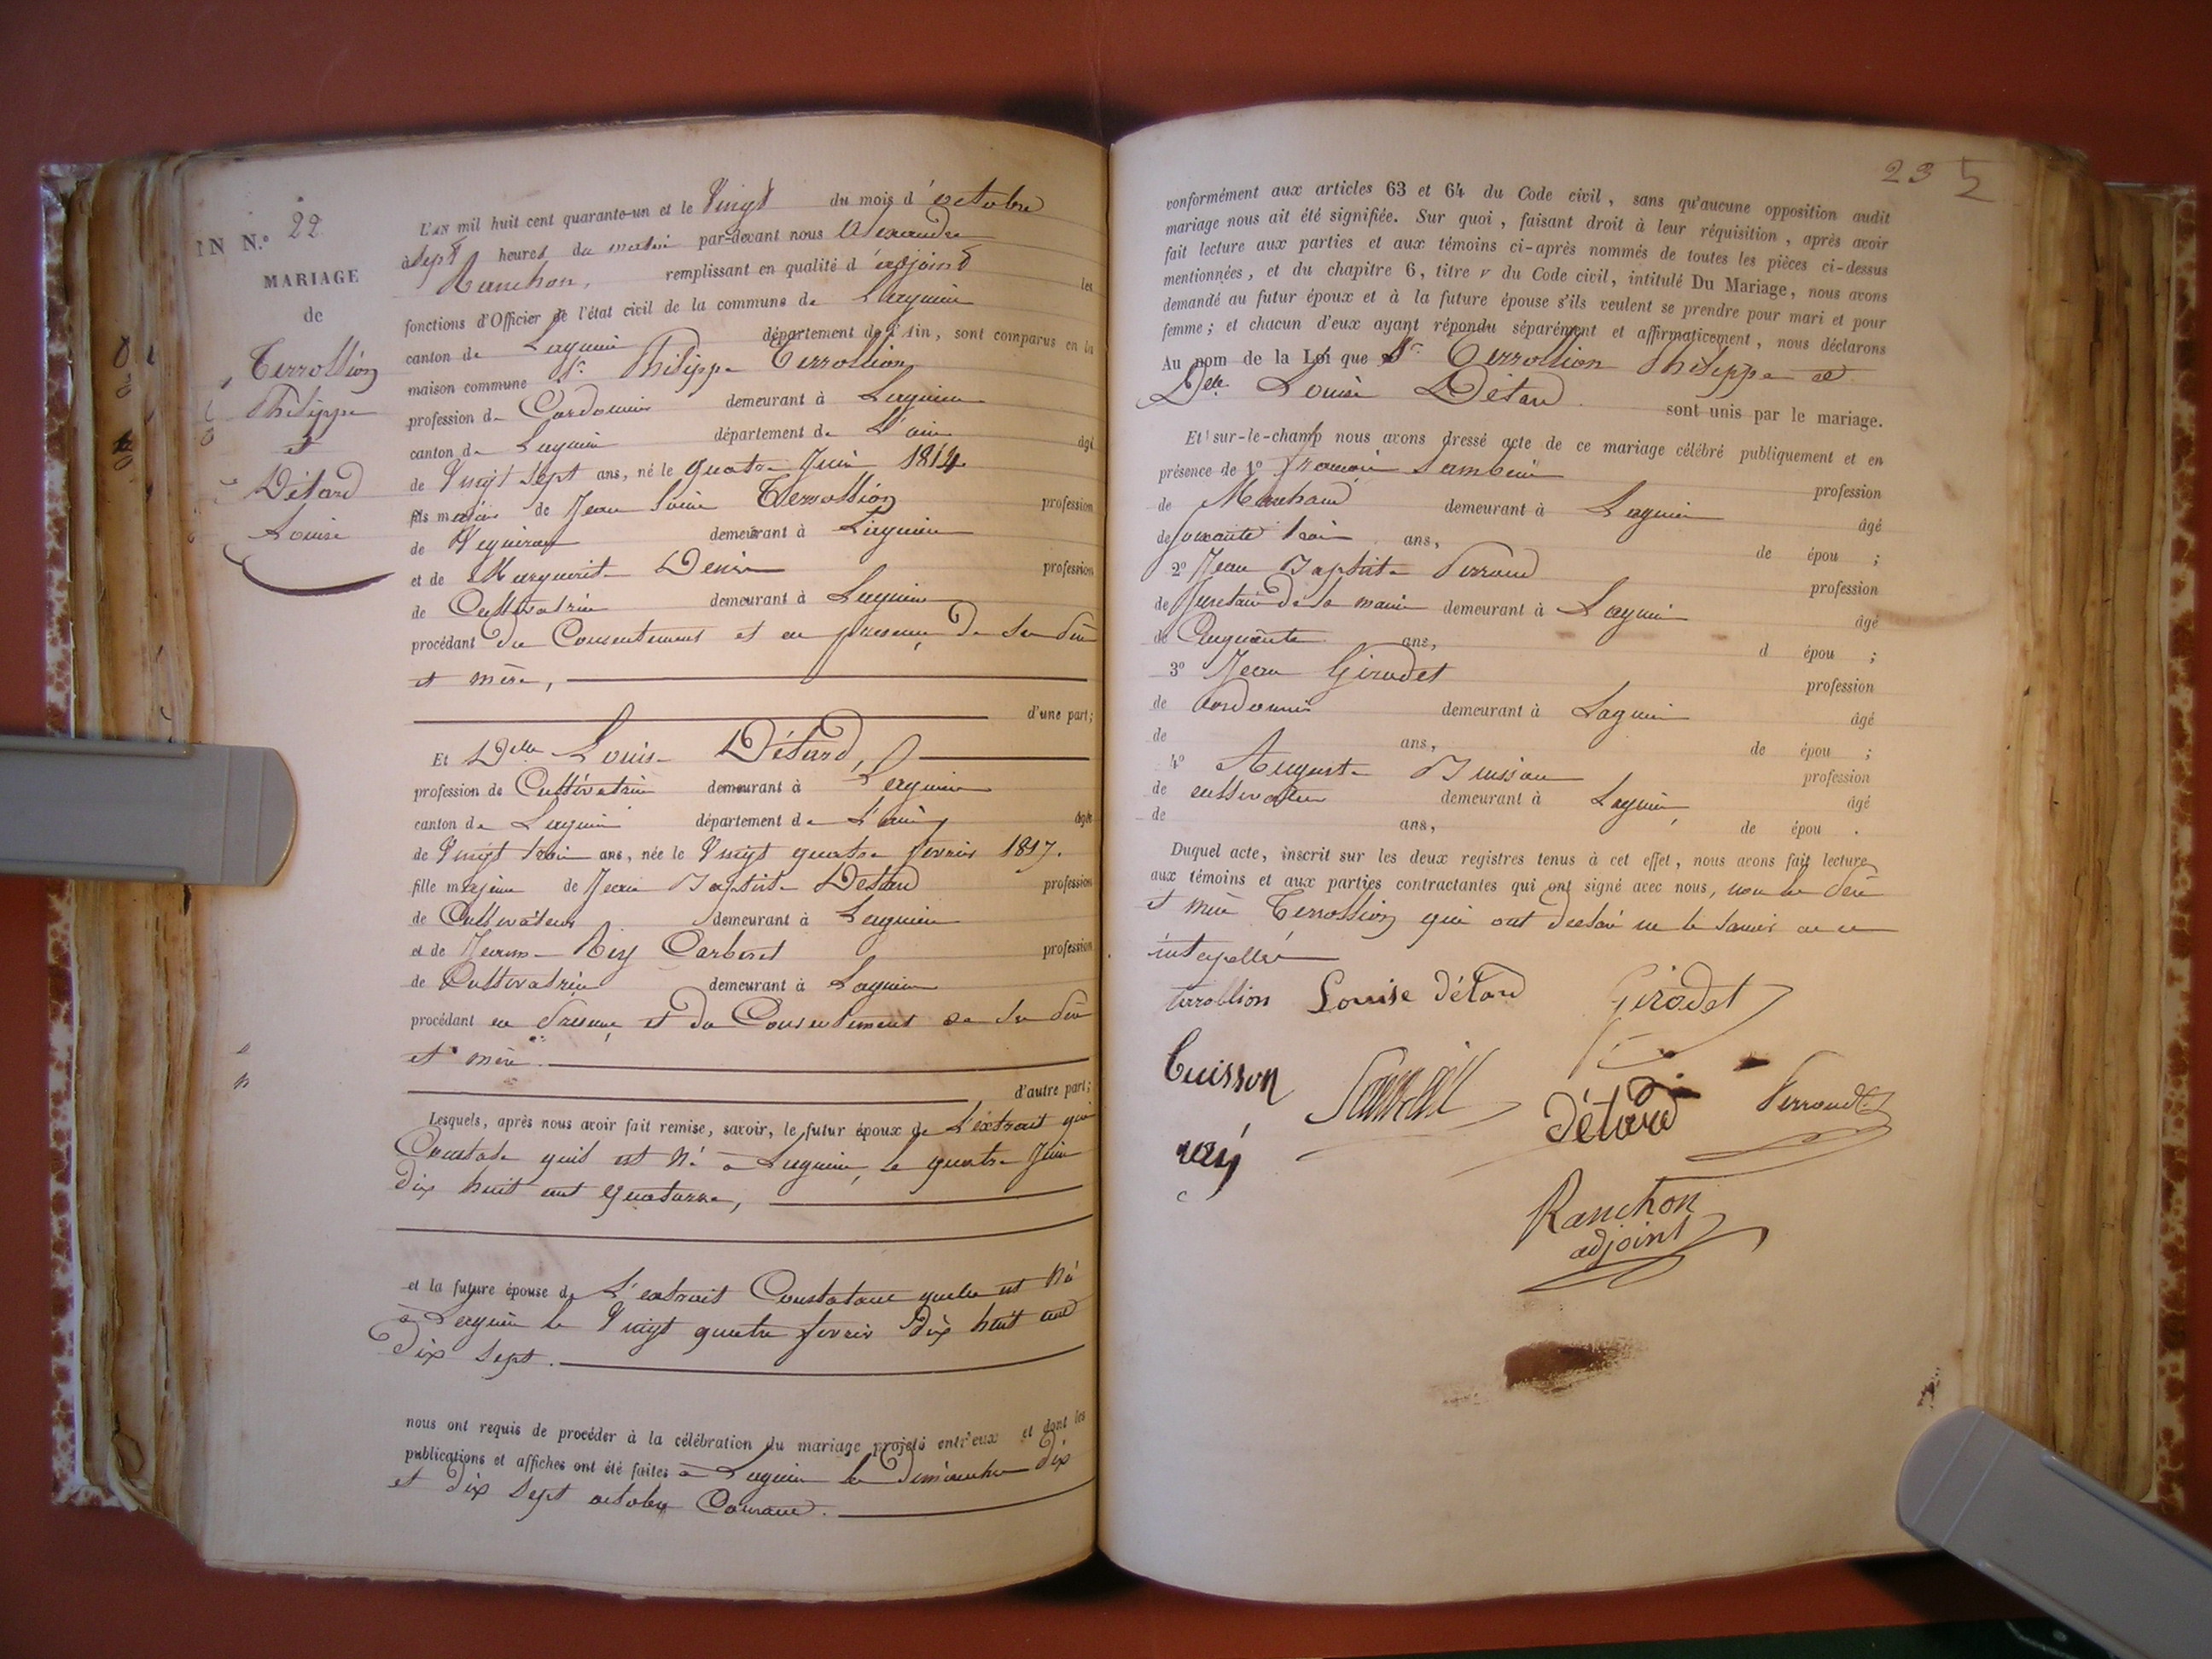 IN N.° 22
MARIAGE
de
Terrollion
Philippe
et
Détard
Louise
L'AN mil huit cent quarante-un et le Vingt du mois d'octobre
à sept heures du matin par-devant nous Alexandre
Ranchon, remplissant en qualité d'adjoint les
fonctions d'Officier de l'état civil de la commune de Lagnieu
canton de Lagnieu département de l'Ain, sont comparus en la
maison commune Sr. Philippe Terrollion
profession de Cordonnier demeurant à Lagnieu
canton de Lagnieu département de L'ain âgé
de Vingt Sept ans, né le quatre Juin 1814
fils majeur de Jean Terrollion profession
de Vigneron demeurant à Lagnieu
et de Marguerite Denis profession
de Cultivatrice demeurant à Lagnieu
procédant du Consentement et en présence de ses Père
et mère,
d'une part;
Et Delle Louise Détard,
profession de Cultivatrice demeurant à Lagnieu
canton de Lagnieu département de L'ain, âgée
de Vingt trois ans, née le Vingt quatre fevrier 1817.
fille majeure de Jean Baptiste Détard profession
de Cultivateur demeurant à Lagnieu
et de Rey Carboret profession
de Cultivatrice demeurant à Lagnieu
procédant en Présence et du Consentement de ses Père
et mère.
d'autre part;
Lesquels, après nous avoir fait remise, savoir, le futur époux de L'extrait qui
Constate quil est Né à Lagnieu, le quatre Juin
dix huit cent quatorze,
et la future épouse de L'extrait Constatant quelle est Né
à Lagnieu le Vingt quatre fevrier dix huit cent
dix Sept.
nous ont requis de procéder à la célébration du mariage projeté entr'eux et dont les
publications et affiches ont été faites à Lagnieu les Dimanches dix
et dix Sept octobre Courant.
235
conformément aux articles 63 et 64 du Code civil, sans qu'aucune opposition audit
mariage nous ait été signifiée. Sur quoi, faisant droit à leur réquisition, après avoir
fait lecture aux parties et aux témoins ci-après nommés de toutes les pièces ci-dessus
mentionnées, et du chapitre 6, titre v du Code civil, intitulé Du Mariage, nous avons
demandé au futur époux et à la future épouse s'ils veulent se prendre pour mari et pour
femme; et chacun d'eux ayant répondu séparément et affirmativement, nous déclarons
Au nom de la Loi que Sr. Terrollion Philippe et
Delle. Louise Détard sont unis par le mariage.
Et sur-le-champ nous avons dressé acte de ce mariage célébré publiquement et en
présence de 1° françois profession
de Marchand demeurant à Lagnieu âgé
de soixante trois ans, de épou ;
2° Jean Baptiste Perroud profession
de Secretaire de la mairie demeurant à Lagnieu âgé
de Cinquante ans, d épou ;
3° Jean Girodet profession
de Cordonnier demeurant à Lagnieu âgé
de ans, de épou ;
4° Auguste Buisson profession
de cultivateur demeurant à Lagnieu, âgé
de ans, de épou .
Duquel acte, inscrit sur les deux registres tenus à cet effet, nous avons fait lecture
aux témoins et aux parties contractantes qui ont signé avec nous, non les Père
et mère Terrollion qui ont déclaré ne le savoir de ce
interpellés
terrollion Louise détard Girodet
buisson détard Perroud
rey
Ranchon
adjoint